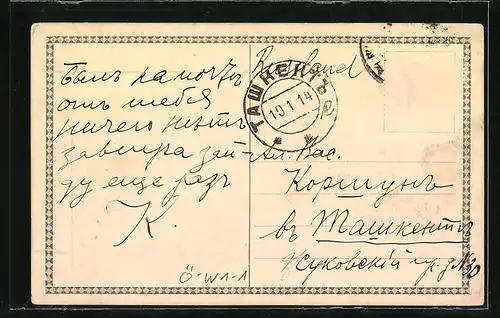 Былъ на почтѣ
отъ тебя
ничего нѣтъ
завтра зай-
ду еще разъ
К.
Russland
ТАШКЕНТЪ
10 1 14
Ал. Вас.
Коршунъ
въ Ташкентѣ
Жуковскій ул. д. №
Ö-W1-1